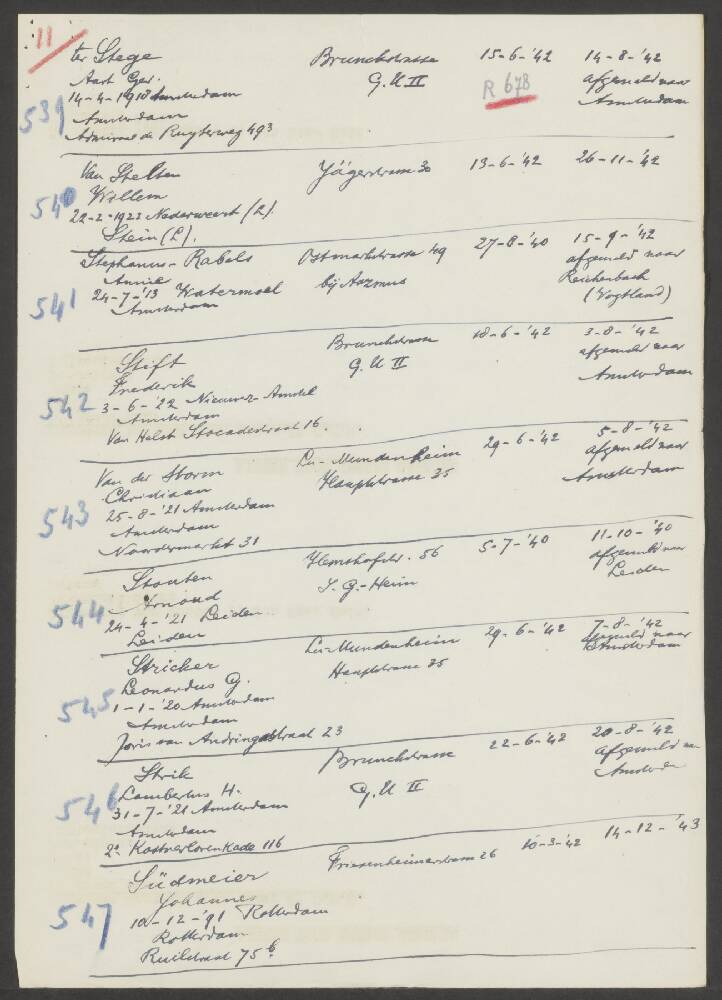 11
539
ter Stege Brunckstrasse 15-6-'42 14-8-'42
Aart Ger. G.U II R 678 afgemeld naar
14-4-1918 Amsterdam Amsterdam
Amsterdam
Admiraal de Ruyterweg 493
540
Van Stelten Jägerstrasse 30 13-6-'42 26-11-'42
Willem
22-2-1923 Nederweert (L).
Stein (L).
541
Stephanus-Rabels Ostmarkstrasse 49 27-8-'40 15-9-'42
Annie bij Aazmus afgemeld naar
24-7-'13 Watermael Reichenbach
Amsterdam (Vogtland)
542
Stift Brunckstrasse 18-6-'42 3-8-'42
Frederik G.U II afgemeld naar
3-6-'22 Nieuwer-Amstel Amsterdam
Amsterdam
Van Helst Stocadestraat 16.
543
Van der Storm Lu-Mundenheim 29-6-'42 5-8-'42
Christiaan Hauptstrasse 35 afgemeld naar
25-8-'21 Amsterdam Amsterdam
Amsterdam
Noordermarkt 31
544
Stouten Hemshofstr. 56 5-7-'40 11-10-'40
Arnoud I.G.-Heim afgemeld naar
24-4-'21 Leiden Leiden
Leiden
545
Stricker Lu-Mundenheim 29-6-'42 7-8-'42
Leonardus G. Hauptstrasse 35 afgemeld naar
1-1-'20 Amsterdam Amsterdam
Amsterdam
Joris van Andringastraat 23
546
Strik Brunckstrasse 22-6-'42 20-8-'42
Lambertus H. G.U II afgemeld
31-7-'21 Amsterdam
Amsterdam
2e Kostverlorenkade 116
547
Südmeier Friesenheimerstrasse 26 10-3-'42 14-12-'43
Johannes
10-12-'91 Rotterdam
Rotterdam
Ruilstraat 75b